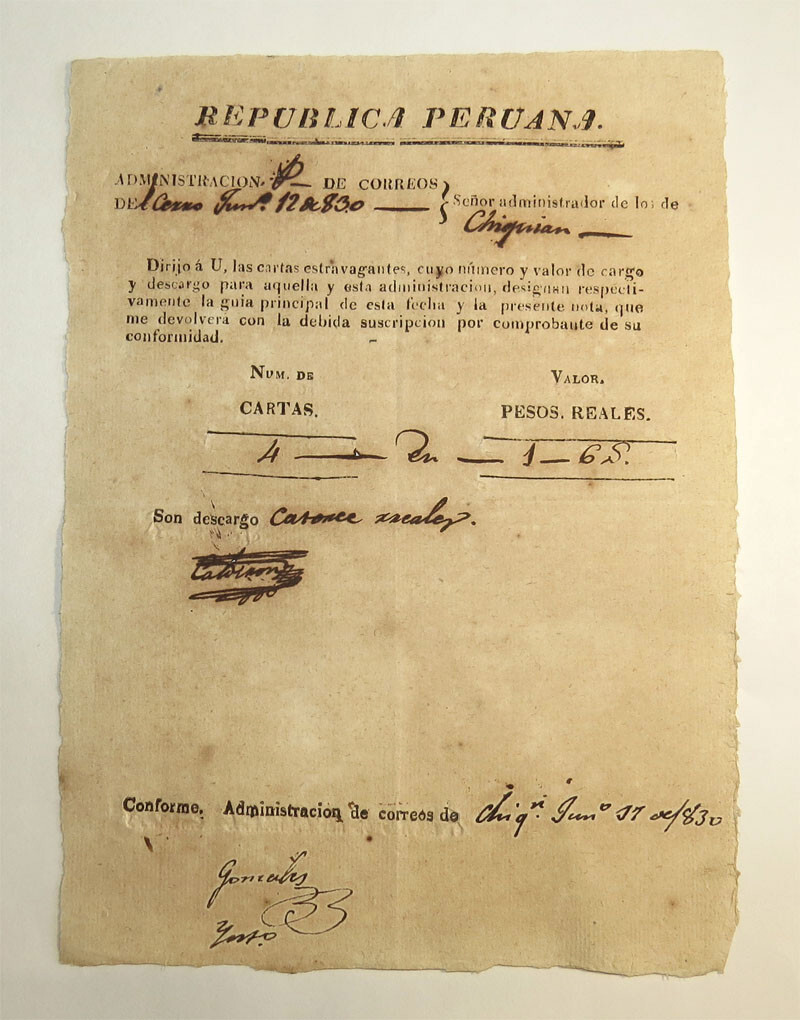 REPUBLICA PERUANA.
ADMINISTRACION. P DE CORREOS
DEl Cerro Jun.o 12 de 830
Señor administrador de los de
Chiquian
Dirijo á U, las cartas estravagantes, cuyo número y valor de cargo
y descargo para aquella y esta administracion, designan respecti-
vamente la guia principal de esta fecha y la presente nota, que
me devolverá con la debida suscripcion por comprobante de su
conformidad.
NUM. DE VALOR.
CARTAS. PESOS. REALES.
4 — En — 1 — 6 S.
Son descargo Catorce rreales.
Calderon
Conforme. Administracion de correos de Chiq.n Jun.o 17 de/830
Gonzales